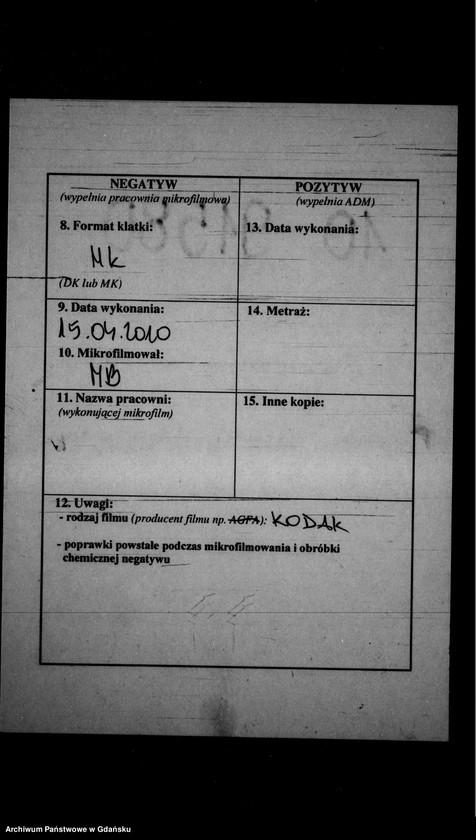 NEGATYW
(wypełnia pracownia mikrofilmowa)
8. Format klatki:
MK
(DK lub MK)
9. Data wykonania:
15.04.2010
10. Mikrofilmował:
MB
11. Nazwa pracowni:
(wykonującej mikrofilm)
POZYTYW
(wypełnia ADM)
13. Data wykonania:
14. Metraż:
15. Inne kopie:
12. Uwagi:
- rodzaj filmu (producent filmu np. AGFA): KODAK
- poprawki powstałe podczas mikrofilmowania i obróbki
chemicznej negatywu
Archiwum Państwowe w Gdańsku